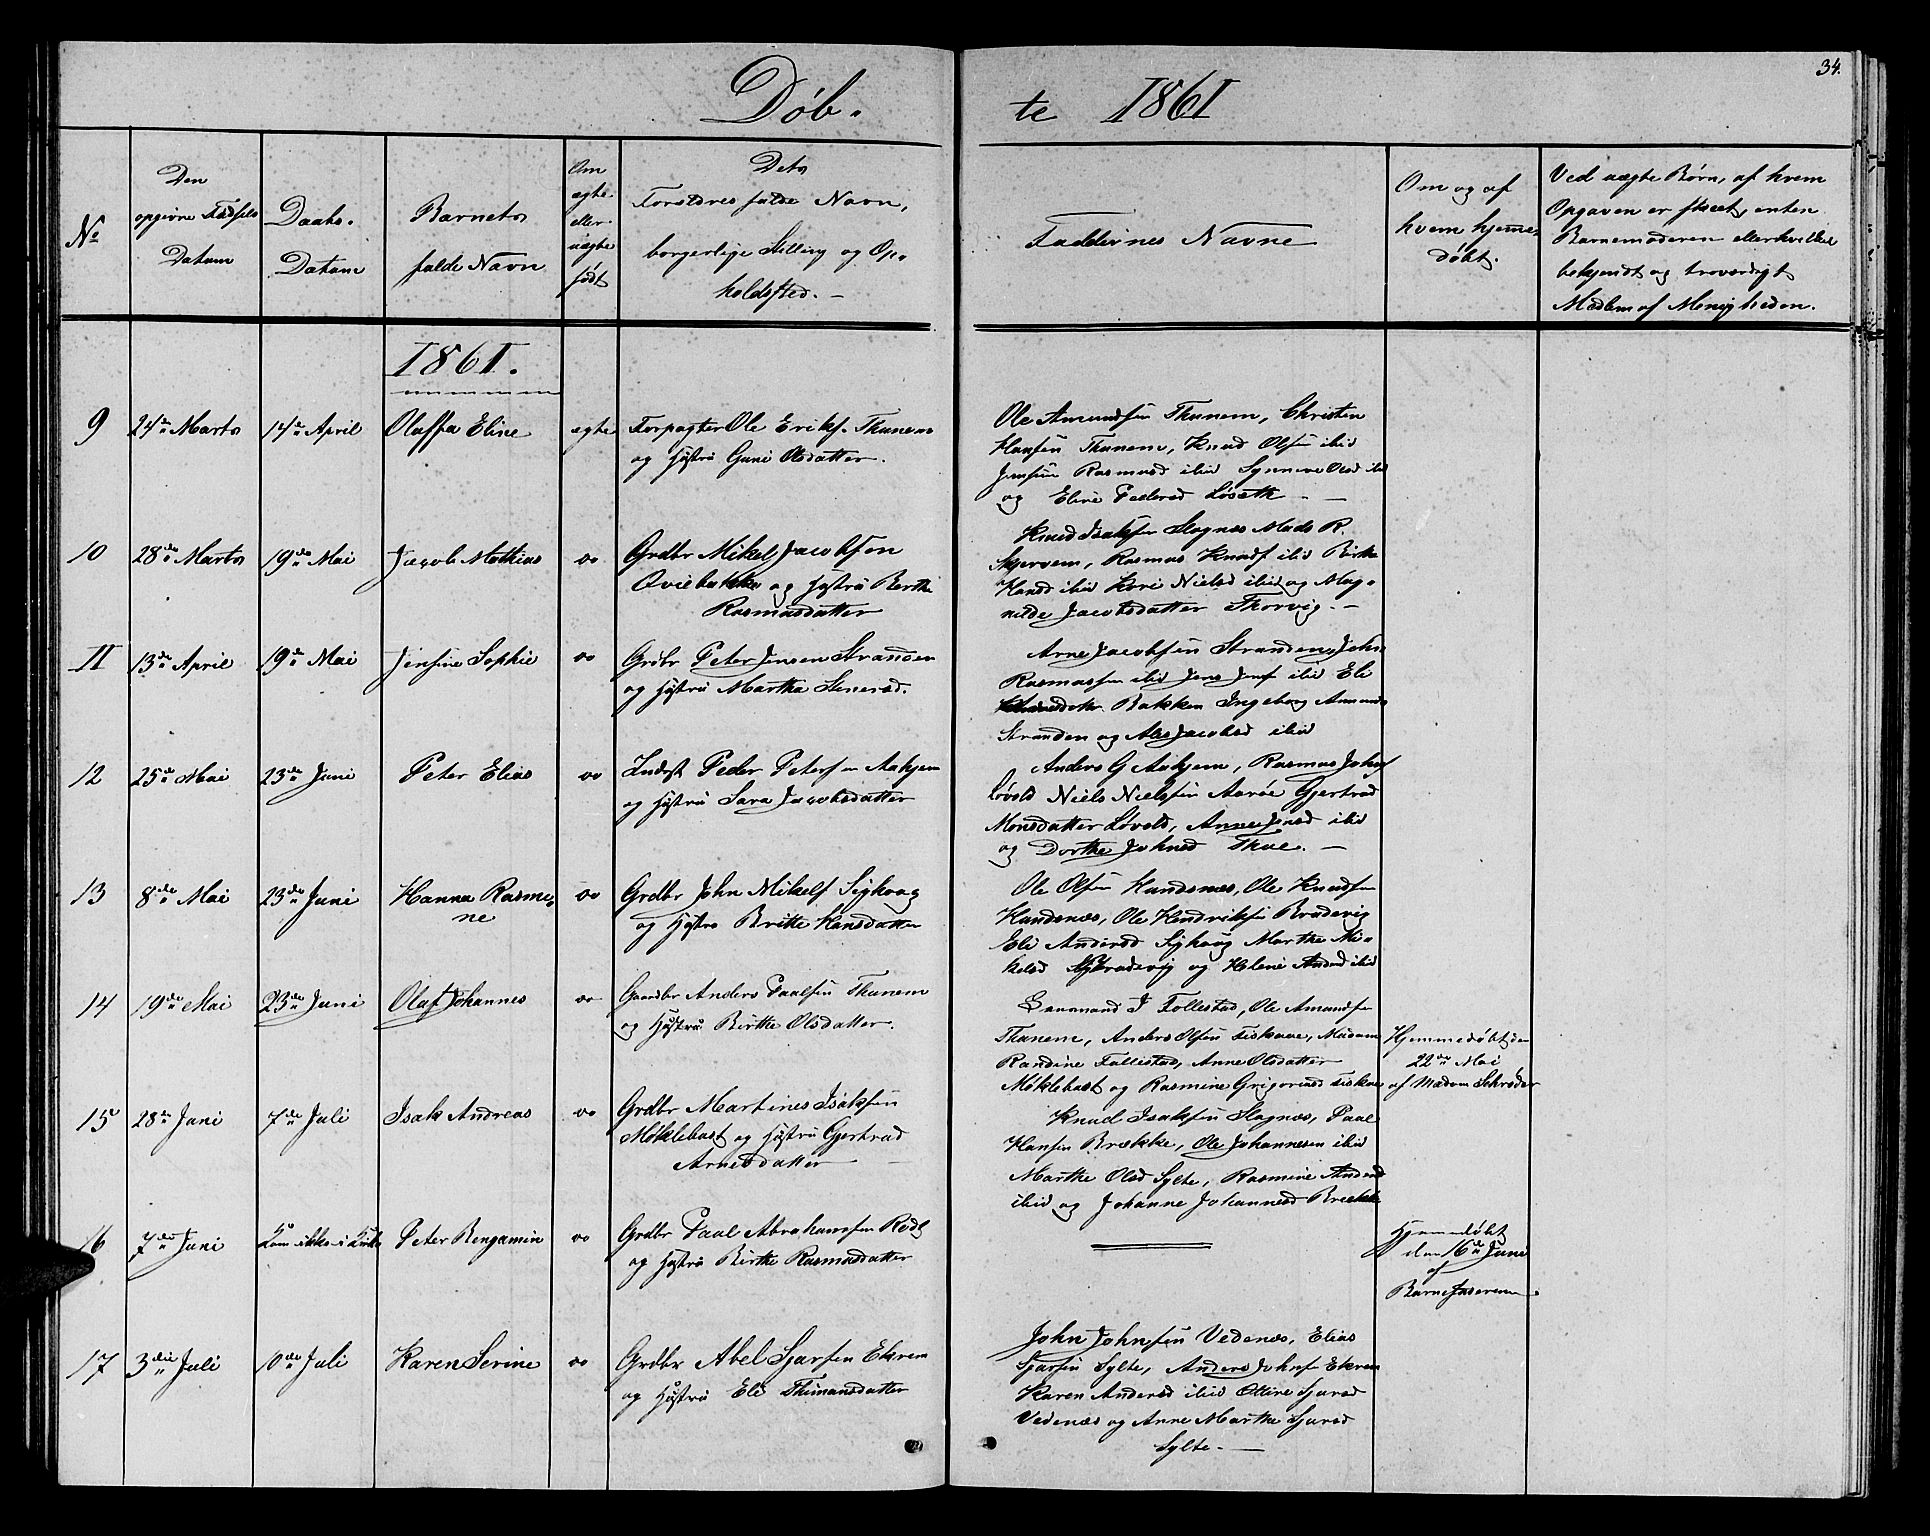 34.
Døb.
te 1861
No
Den
opgivne Fødsels
Datum
Daabs.
Datum
Barnets
fulde Navn
Om
ægte
eller
uægte
født
Dets
Forældres fulde Navn,
borgerlige Stilling og Op.
holdssted. -
Faddernes Navne
Om og af
hvem hjemme
døbt.
Ved uægte Børn, af hvem
Opgaven er skeet, enten
Barnemoderen eller hvilket
bekjendt og troværdigt
Medlem af Menigheden.
1861.
9
24de Marts
14de April
Olaffa Eline
ægte
Forpagter Ole Eriks. Thunem
og Hustru Guni Olsdatter.
Ole Amundsen Thunem, Christen
Hansen Thunem, Knud Olsen ibid
Rasmusd ibid Synneve Olsd ibid
og Eline Pedersd Løseth -
10
28de Marts
19de Mai
Jacob Mathias
oo
Grdbr Mikel Jacobsen
Oviebakke og Hustru Berthe
Rasmusdatter
Knud Isaksen Slagnæs Mads R.
Skjervem, Rasmus Knuds ibid Birthe
Hansd ibid Kari Nielsd ibid og Mag-
nilde Jacobsdatter Thorvig. -
11
13de April
19de Mai
Jensine Sophie
oo
Grdbr Peter Jensen Stranden
og Hustru Martha Stenersd.
Arne Jacobsen Stranden, John
Rasmussen ibid Jens Jens ibid Eli
Bakken Ingeborg Amunds
Stranden og Jacobsd ibid
12
25de Mai
23de Juni
Peter Elias
oo
Inderst Peder Petersen Aakjem
og Hustru Sara Jacobsdatter
Anders G Aakjem, Rasmus Johns
Løvold Niels Nielsen Aarøe Gjertrud
Monsdatter Løvold, Anne Jensd ibid
og Dorthe Johnsd Thue. -
13
8de Mai
23de Juni
Hanna Rasmi-
ne
oo
Grdbr John Mikels Lyhoug
og Hustru Britte Hansdatter
Ole Olsen Hundsnæs, Ole Knudsen
Hundsnæs, Ole Hendriksen Brudevig
Eli Andersd Lyhoug Marthe Mi-
kelsd Brudevig og Helene Andersd ibid
14
19de Mai
23de Juni
Olaf Johannes
oo
Gaardbr Anders Paulsen Thunem
og Hustru Birthe Olsdatter.
Lensmand J Follestad, Ole Amundsen
Thunem, Anders Olsen Fiskaae, Madam
Randine Follestad, Anne Olsdatter
Møklebust og Rasmine Grigoriusd Fiskaae
Hjemmedøbt den
22de Mai
af Madam Schrøder
15
28de Juni
7de Juli
Isak Andreas
oo
Grdbr Martines Isaksen
Møklebust og Hustru Gjertrud
Arnesdatter
Knud Isaksen Slagnæs, Paul
Hansen Brække, Ole Johannesen ibid
Marthe Olsd Sylte, Rasmine Andersd
ibid og Johanne Johannesd Brække
16
7de Juni
Kom ikke i Kirke
Peter Benjamin
oo
Grdbr Paul Abrahamsen Røds
og Hustru Birthe Rasmusdatter
Hjemmedøbt
den 16de Juni
af
Barnefaderen.
17
3die Juli
10de Juli
Karen Serine
oo
Grdbr Abel Sjursen Ekrem
og Hustru Eli Thimansdatter
John Johnsen Vedenæs, Elias
Sjursen Sylte, Anders Johns Ekrem
Karen Andersd ibid Oline Sjursd
Vedenæs og Anne Marthe Sjursd
Sylte. -